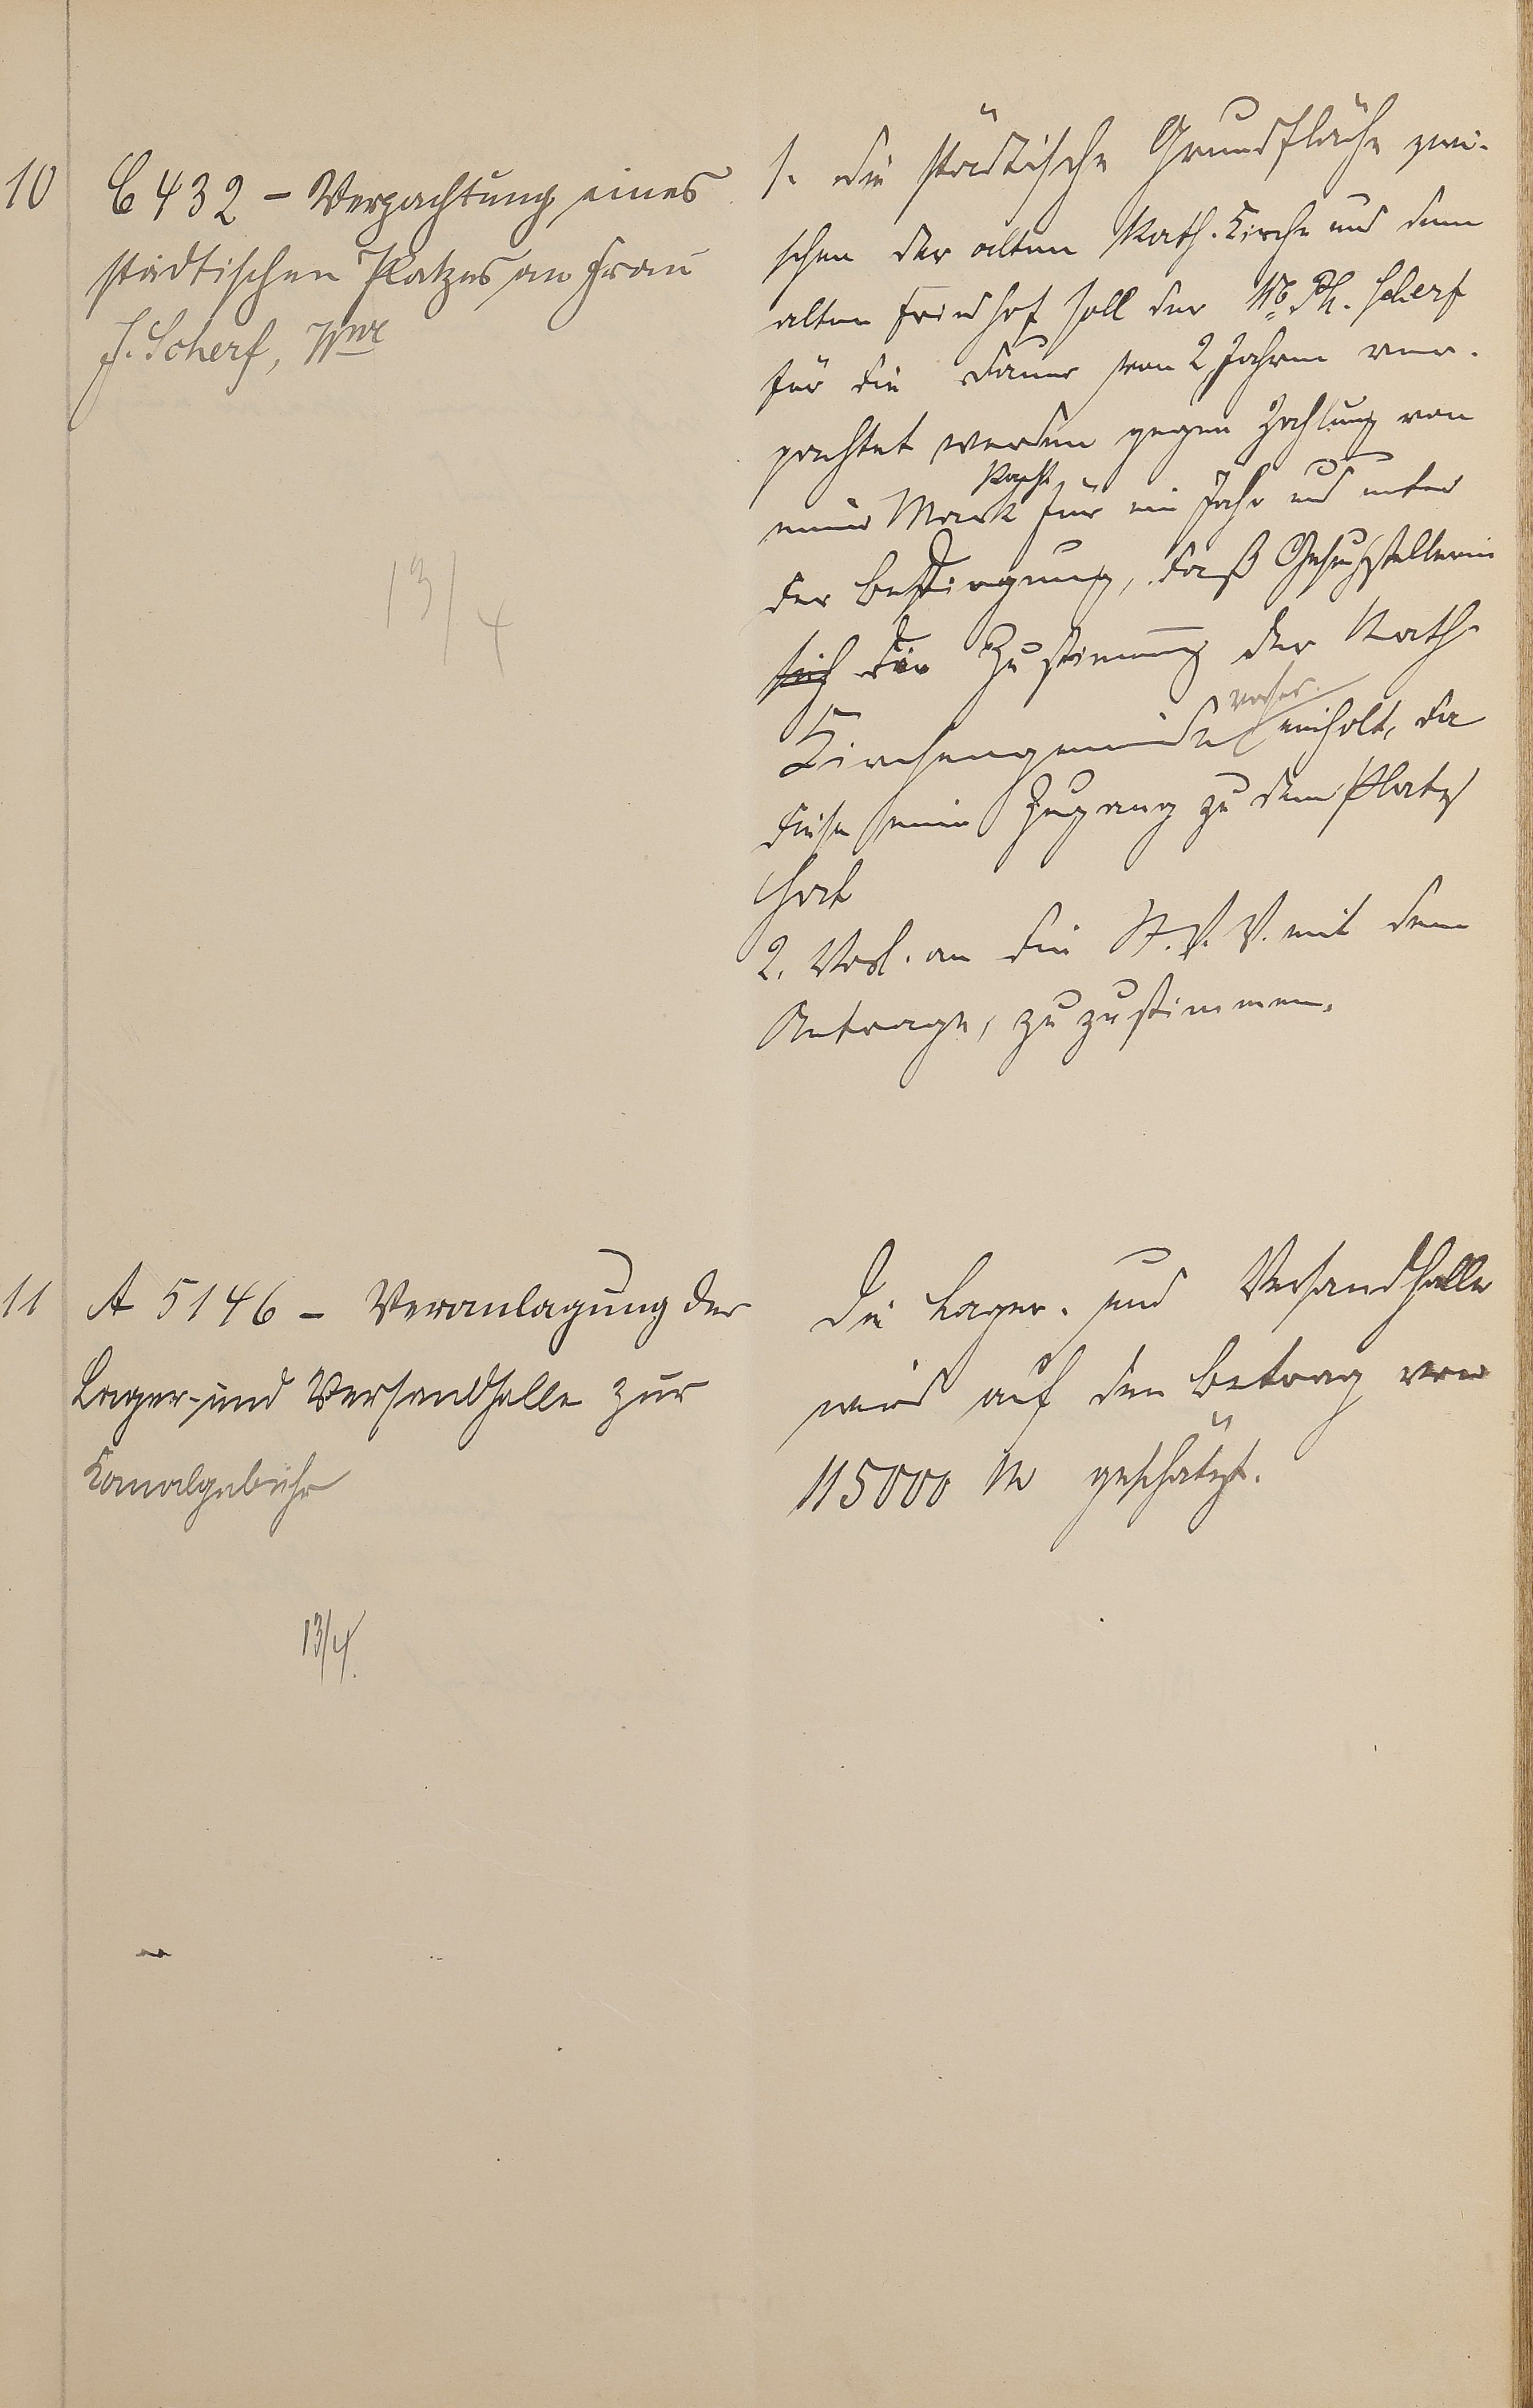 10
C 432 - Verpachtung eines
städtischen Platzes an Frau
J. Scherf, Wwe
13/4
1. die städtische Grundfläche zwi-
schen der alten Kath. Kirche und dem
alten Friedhof soll der Ww. Ph. Scherf
für die Dauer von 2 Jahren ver-
pachtet werden gegen Zahlung von
einer Mark Pacht für ein Jahr und unter
der Bedingung, daß Gesuchstellerin
sich die Zustimmung der Kath.
Kirchengemeinde vorher einholt, da
diese einen Zugang zu dem Platz
hat
2. Vorl. an die St. V. V. mit dem
Antrage, zuzustimmen.
11
A 5146 - Veranlagung der
Lager- und Versandhalle zur
Kanalgebühr
13/4.
Die Lager- und Versandhalle
wird auf den Betrag von
115000 M geschätzt.